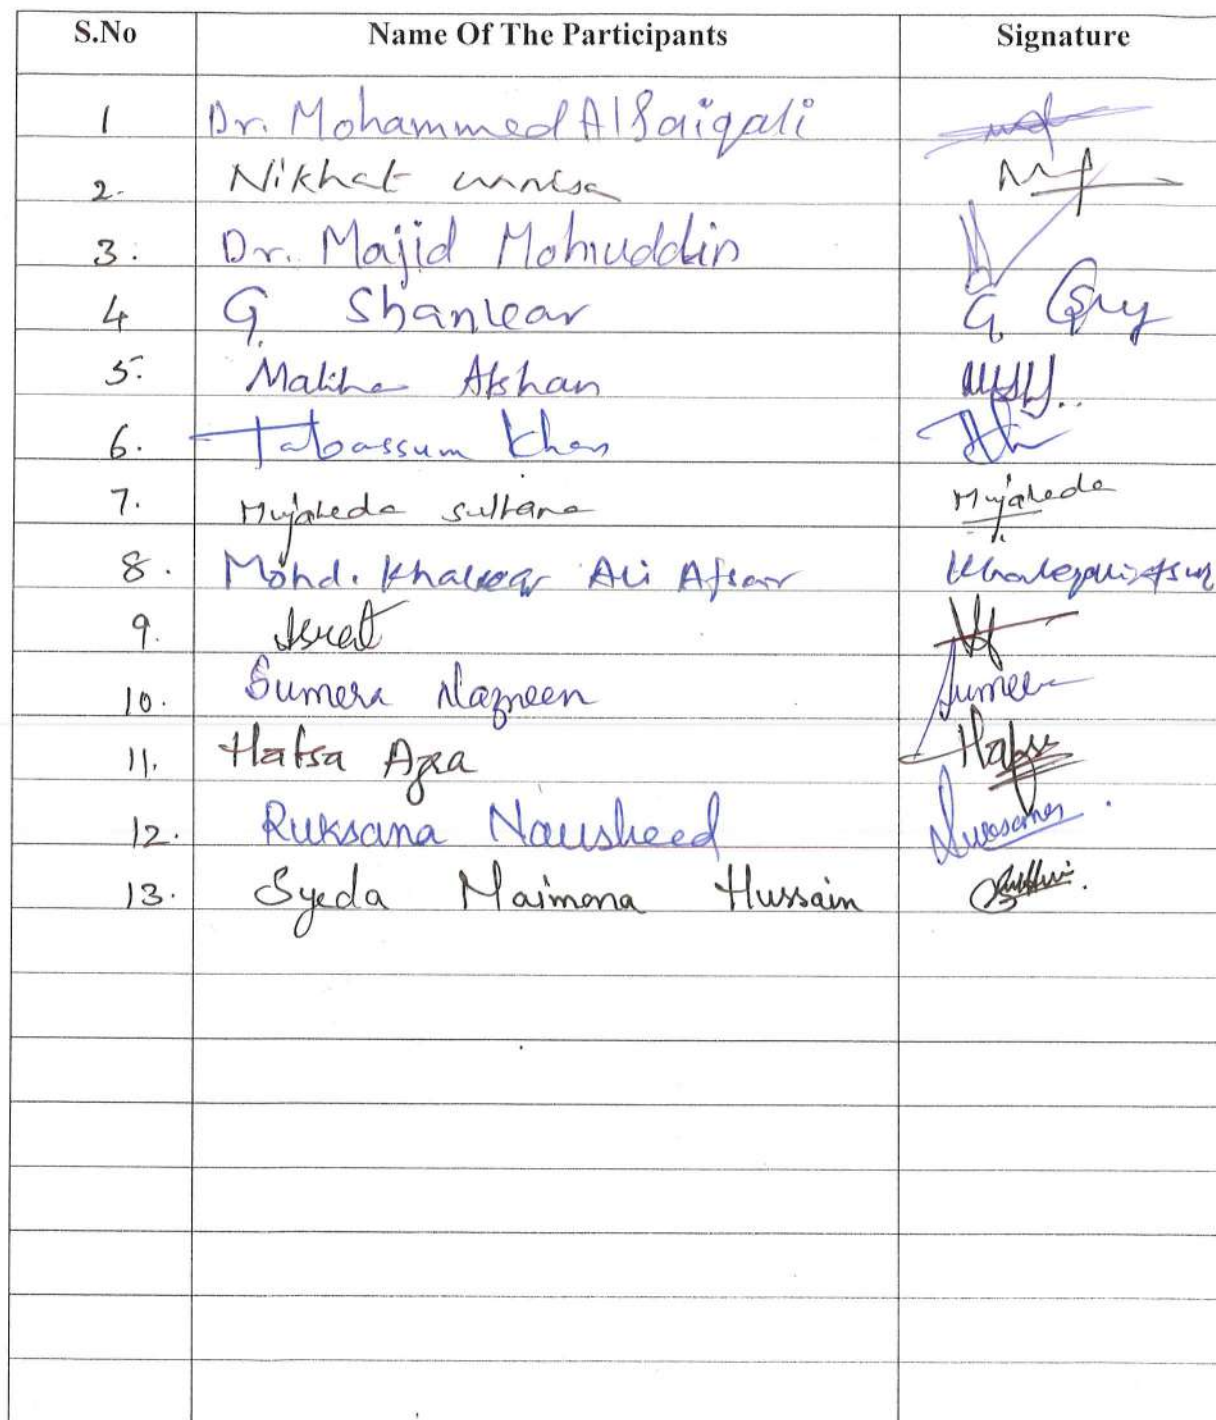 S.No Name Of The Participants Signature
1 Dr. Mohammed AlSaiqali
2. Nikhat unnisa
3. Dr. Majid Mohiuddin
4 G. Shankar G.
5. Maliha Afshan
6. Tabassum Khan
7. Mujaheda sultana Mujaheda
8. Mohd. Ali Afsar
9. Israt
10. Sumera Nazneen Sumera
11. Hafsa Azra Hafsa
12. Ruksana Nausheed
13. Syeda Maimona Hussain